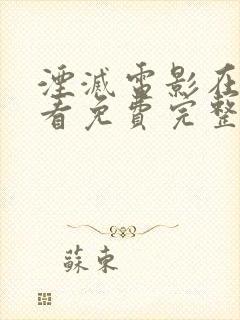 湮滅電影在
看免費完整
蘇東